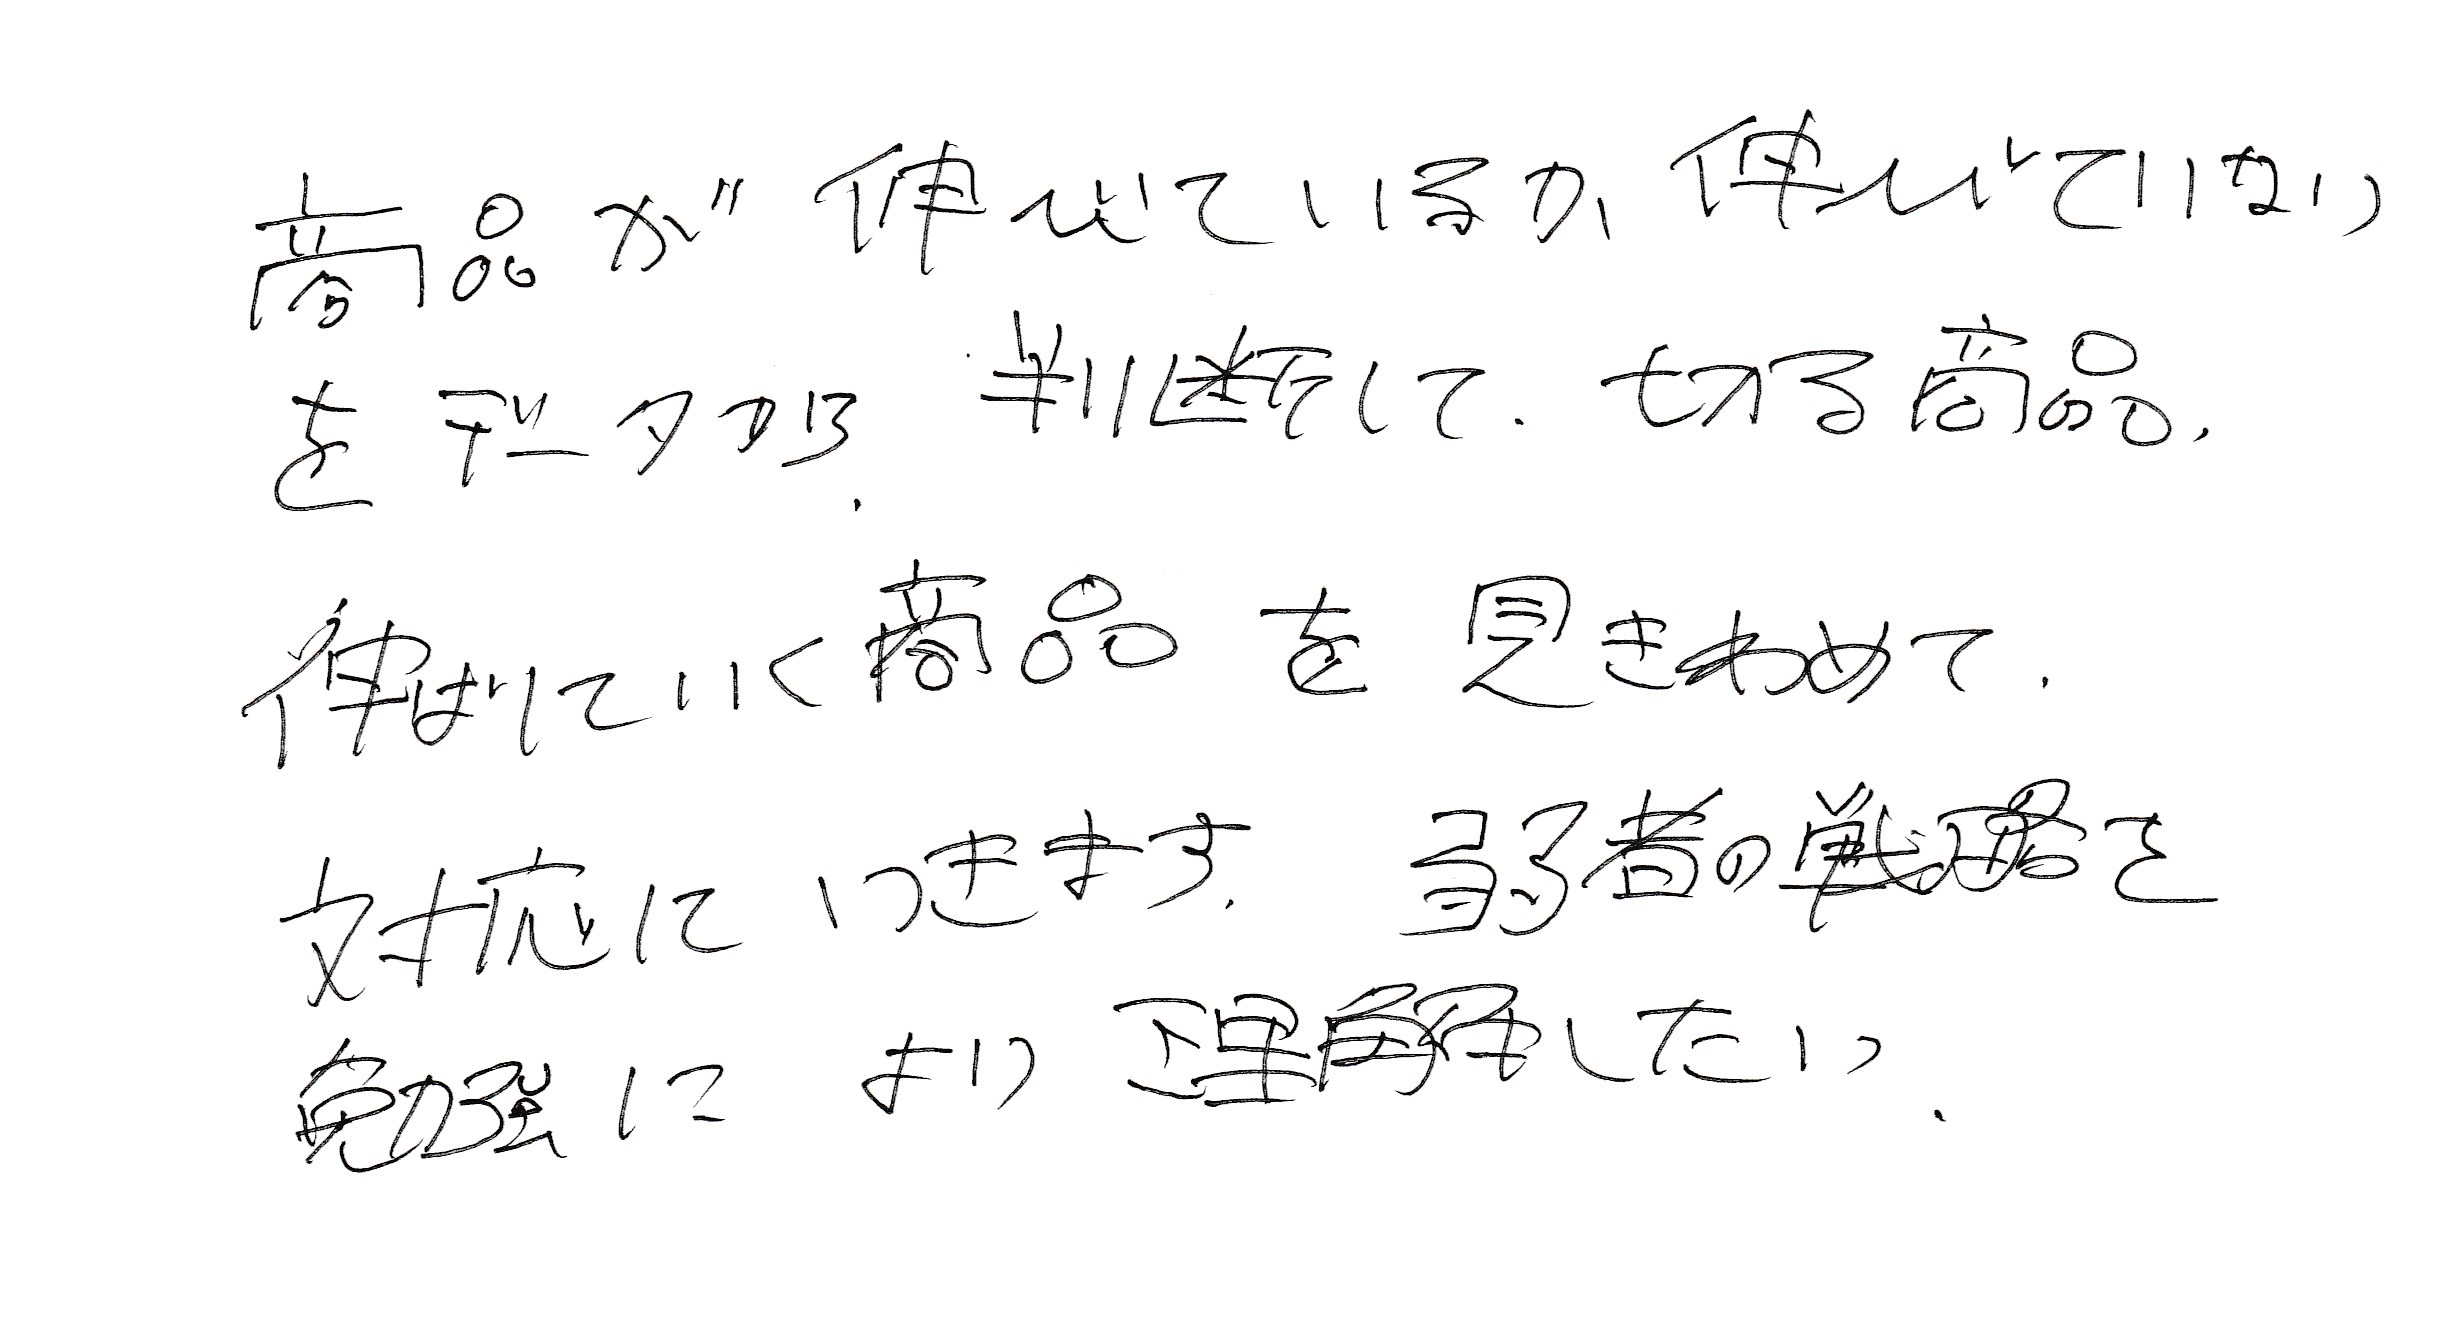 商品が伸びているか、伸びていない
をデータから、判断して、切る商品、
伸ばしていく商品を見きわめて、
対応にいきます。弱者の戦略を
勉強により理解したい。